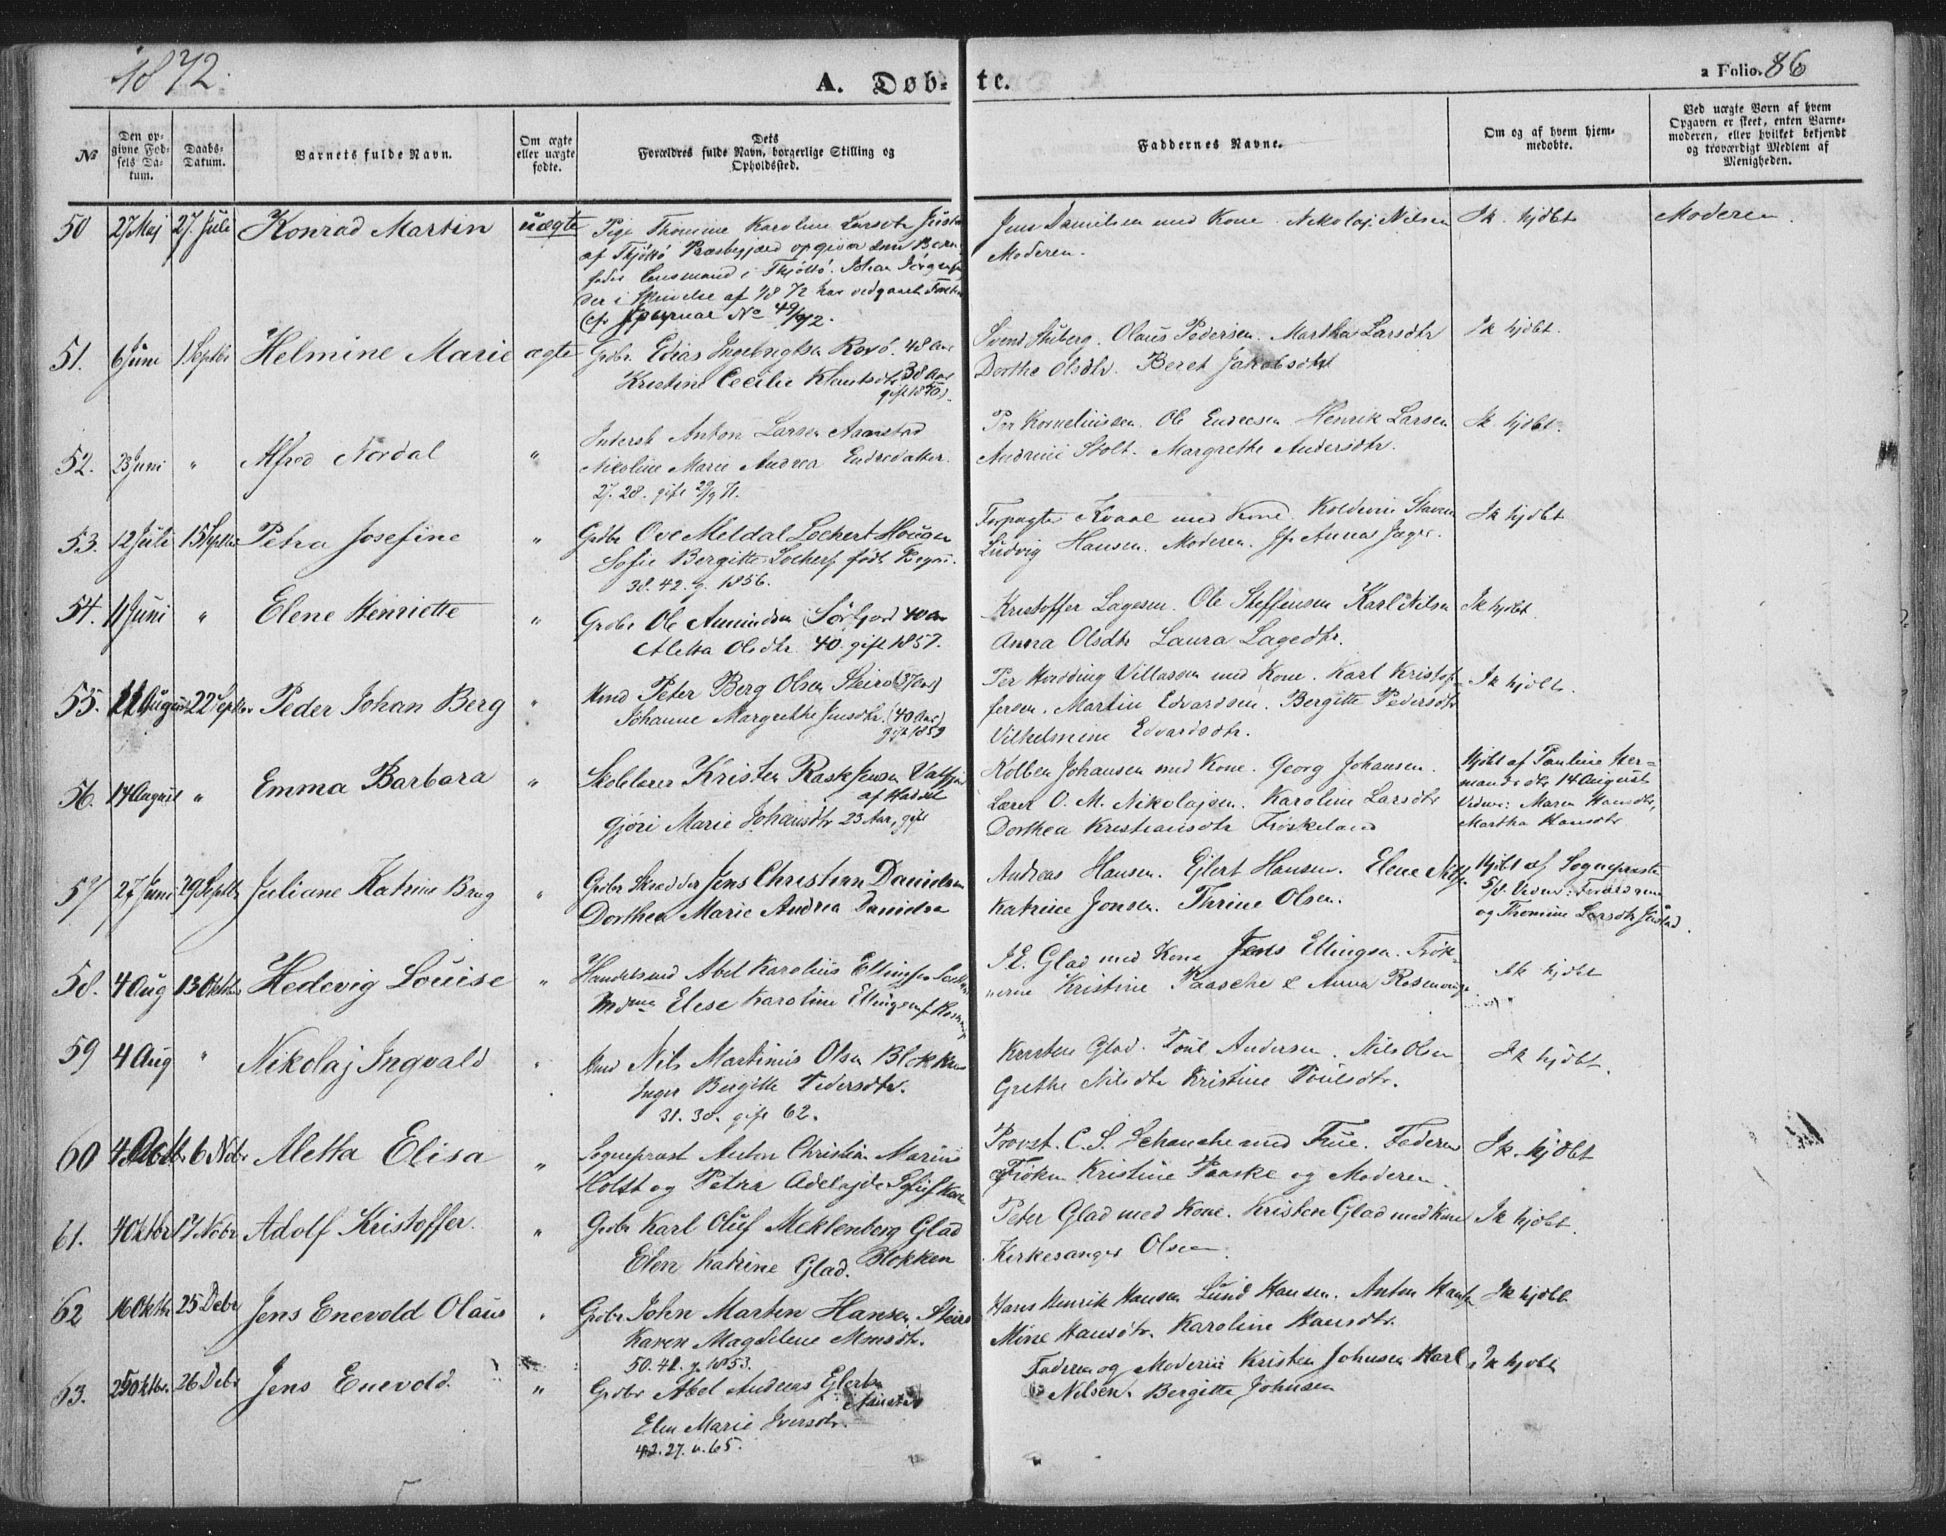 1872.
A. Døb-
te.
a Folio. 86
№
Den op-
givne Fød-
sels Da-
tum.
Daabs-
Datum.
Barnets fulde Navn.
Om ægte
eller uægte
fødte.
Dets
Forældres fulde Navn, borgerlige Stilling og
Opholdssted.
Faddernes Navne.
Om og af hvem hjem-
medøbte.
Ved uægte Børn af hvem
Opgaven er skeet, enten Barne-
moderen, eller hvilket bekjendt
og troværdigt Medlem af
Menigheden.
50 27 Maj 27 Juli Konrad Martin uægte Pige Thomine Karoline Larsdtr
af Tjøttø Præstegjæld opgiver som Barne-
fader Lensmand i Tjøttø. Johan
der i Skrivelse af 1872 har vedgaaet
cfr Journal No
Jens Danielsen med Kone. Nikolaj Nilsen
Moderen.
Ik. hjdbt
Moderen.
51. 6 Juni 1 Septbr Helmine Marie ægte Grdbr. Edias Ingebrigtsen 48 Aar
Kristine Cecilie 38 Aar
Svend Stuberg. Olaus Pedersen. Martha Larsdtr
Dorthe Olsdtr. Beret Jakobsdtr
Ik hjdbt.
52. 23 Juni " Alfred Nordal " Inderst Anton Larsen Aanstad
Nikoline Marie Andrea Endredatter.
27. 28. gift 29/9 71.
Per Korneliussen. Ole Endresen Henrik Larsen
Stolt. Margrethe Andersdtr.
Ik hjdbt.
53. 12 Juli 15 Septbr Petra Josefine " Grdbr Ove Meldal Lockert Hougen
Sofie Bergitte Lockert født
38. 42. g. 1856.
Forpagter Kvaal med Kone.
Ludvig Hansen. Moderen. Jfr Anna Jæger.
Ik hjdbt
54. 11 Juni " Elene Henriette " Grdbr Ole Amundsen Sørfjord 40 Aar
Aletta Olsdtr. 40. gift 1857.
Kristoffer Lagesen. Ole Steffensen Karl Nilsen
Anna Olsdtr Laura Lagedtr.
Ik hjdbt.
55. 11 August 22 Septbr Peder Johan Berg " Hmd Peter Berg Olsen Steiro (37 Aar)
Johanne Margrethe Jensdtr. (40 Aar)
gift 1859
Per Hvidding Villassen med Kone. Karl Kristof-
fersen. Martin Edvardsen. Bergitte Pedersdtr
Vilhelmine Edvardsdtr.
Ik hjdbt.
56. 14 August " Emma Barbara " Skolelærer Kristen Rask Jensen
af Hadsel
Gjøri Marie Johansdtr 23 Aar, gift
Kolben Johansen med Kone. Georg Johansen.
Lærer O. M. Nikolajsen. Karoline Larsdtr
Dorthea Kristiansdtr Frøskeland
Hjdbt af Pauline Her-
mansdtr 14 August
Vidner: Maren Hansdtr,
Martha Hansdtr
57 27 Juni 29 Septbr Juliane Katrine Brug " Grdbr Skrædder Jens Christian Danielsen
Dorthea Marie Andrea Danielsen
Andreas Hansen. Ejlert Hansen. Elene
Katrine Jonsen. Thrine Olsen.
Hjdbt af Sognepræsten
5/8. Vidner: Forældrene
og Thomine Larsdtr
58. 4 Aug 13 Oktbr Hedevig Louise " Handelsmd Abel Karolius Ellingsen
Elese Karoline Ellingsen f.
I. E. Glad med Kone Jens Ellingsen. Frøk-
nerne Kristine Paasche & Anna Rosenvinge
Ik hjdbt
59 4 Aug " Nikolaj Ingvald " Hmd Nils Martinus Olsen Blokken
Inger Bergitte Pedersdtr.
31. 38. gift 62.
Kristen Glad. Poul Andersen. Nils Olsen
Grethe Nilsdtr Kristine Poulsdtr.
Ik hjdbt.
60 4 Oktbr 6 Novbr Aletta Elisa " Sognepræst Anton Christian Marius
Holst og Petra Adelajde
Provst C. S. Schanche med Frue. Faderen
Frøken Kristine Paaske og Moderen.
Ik. hjdbt
61. 4 Oktbr 17 Novbr Adolf Kristoffer. " Grdbr Karl Oluf Meklenborg Glad
Elen Katrine Glad. Blokken
Peter Glad med Kone. Kristen Glad med Kone
Kirkesanger Olsen.
Ik hjdbt.
62 16 Oktbr 25 Debr Jens Enevold Olaus " Grdbr John Martin Hansen Steiro
Karen Magdelene Monsdtr.
50. 42. g. 1853.
Hans Henrik Hansen Lund Hansen. Anton Hansen
Mine Hansdtr. Karoline Hansdtr.
Ik hjdbt
63. 25 Oktbr. 26 Debr Jens Enevold. " Grdbr Abel Andreas Ejlertsen
Elen Marie Iversdtr.
42. 27. v. 65.
Faderen og Moderen Kristen Johnsen Karl
Nilsen. Bergitte Johnsen
Ik hjdbt